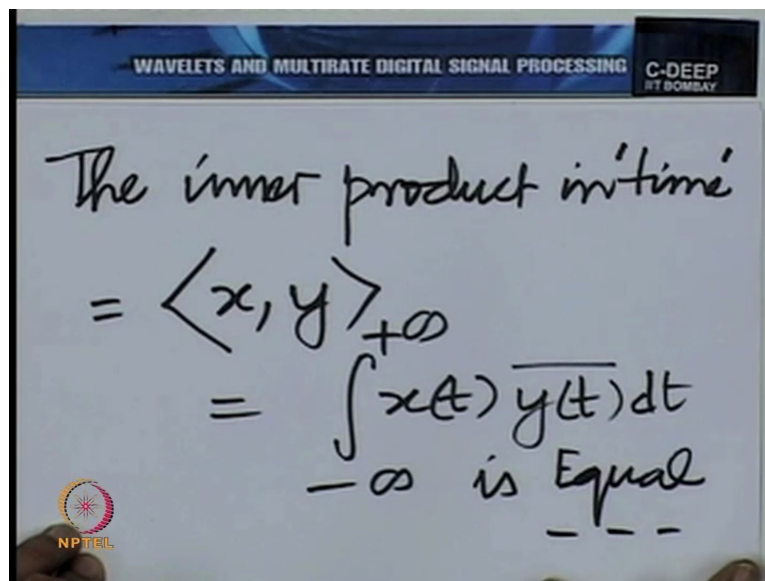 WAVELETS AND MULTIRATE DIGITAL SIGNAL PROCESSING
C-DEEP
IIT BOMBAY
The inner product in 'time'
= ⟨x, y⟩
= ∫_{-∞}^{+∞} x(t) \overline{y(t)} dt
is Equal
NPTEL